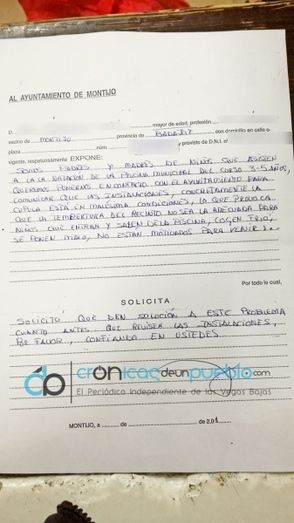 AL AYUNTAMIENTO DE MONTIJO
D. mayor de edad, profesión
vecino de MONTIJO provincia de BADAJOZ con domicilio en calle o
plaza núm. y provisto de D.N.I. nº
vigente, respetuosamente EXPONE:
SOMOS PADRES Y MADRES DE NIÑOS QUE ASISTEN
A LA NATACIÓN DE LA PISCINA MUNICIPAL DEL CURSO 3-5 AÑOS,
QUEREMOS PONERNOS EN CONTACTO CON EL AYUNTAMIENTO PARA
COMUNICAR QUE LAS INSTALACIONES, CONCRETAMENTE LA
CÚPULA ESTÁ EN MALÍSIMA CONDICIONES, LO QUE PROVOCA
QUE LA TEMPERATURA DEL RECINTO NO SEA LA ADECUADA PARA
NIÑOS QUE ENTRAN Y SALEN DE LA PISCINA, COGEN FRIO,
SE PONEN MALO, NO ESTÁN MOTIVADOS PARA VENIR
Por todo lo cual,
SOLICITA
SOLICITO QUE DEN SOLUCIÓN A ESTE PROBLEMA
CUANTO ANTES. QUE REVISEN LAS INSTALACIONES,
POR FAVOR, CONFIANDO EN USTEDES.
crónicasdeunpueblo.com
El Periódico Independiente de las Vegas Bajas
MONTIJO, a de de 201